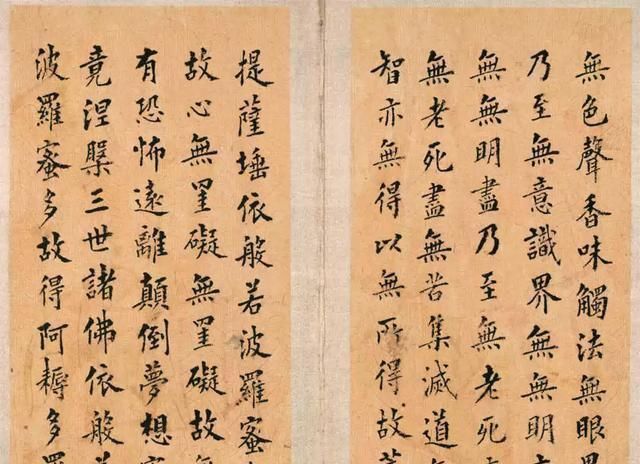 無色聲香味觸法無眼界
乃至無意識界無無明亦
無無明盡乃至無老死
無老死盡無苦集滅道無
智亦無得以無所得故菩
提薩埵依般若波羅蜜
故心無罣礙無罣礙故無
有恐怖遠離顛倒夢想究
竟涅槃三世諸佛依般若
波羅蜜多故得阿耨多羅